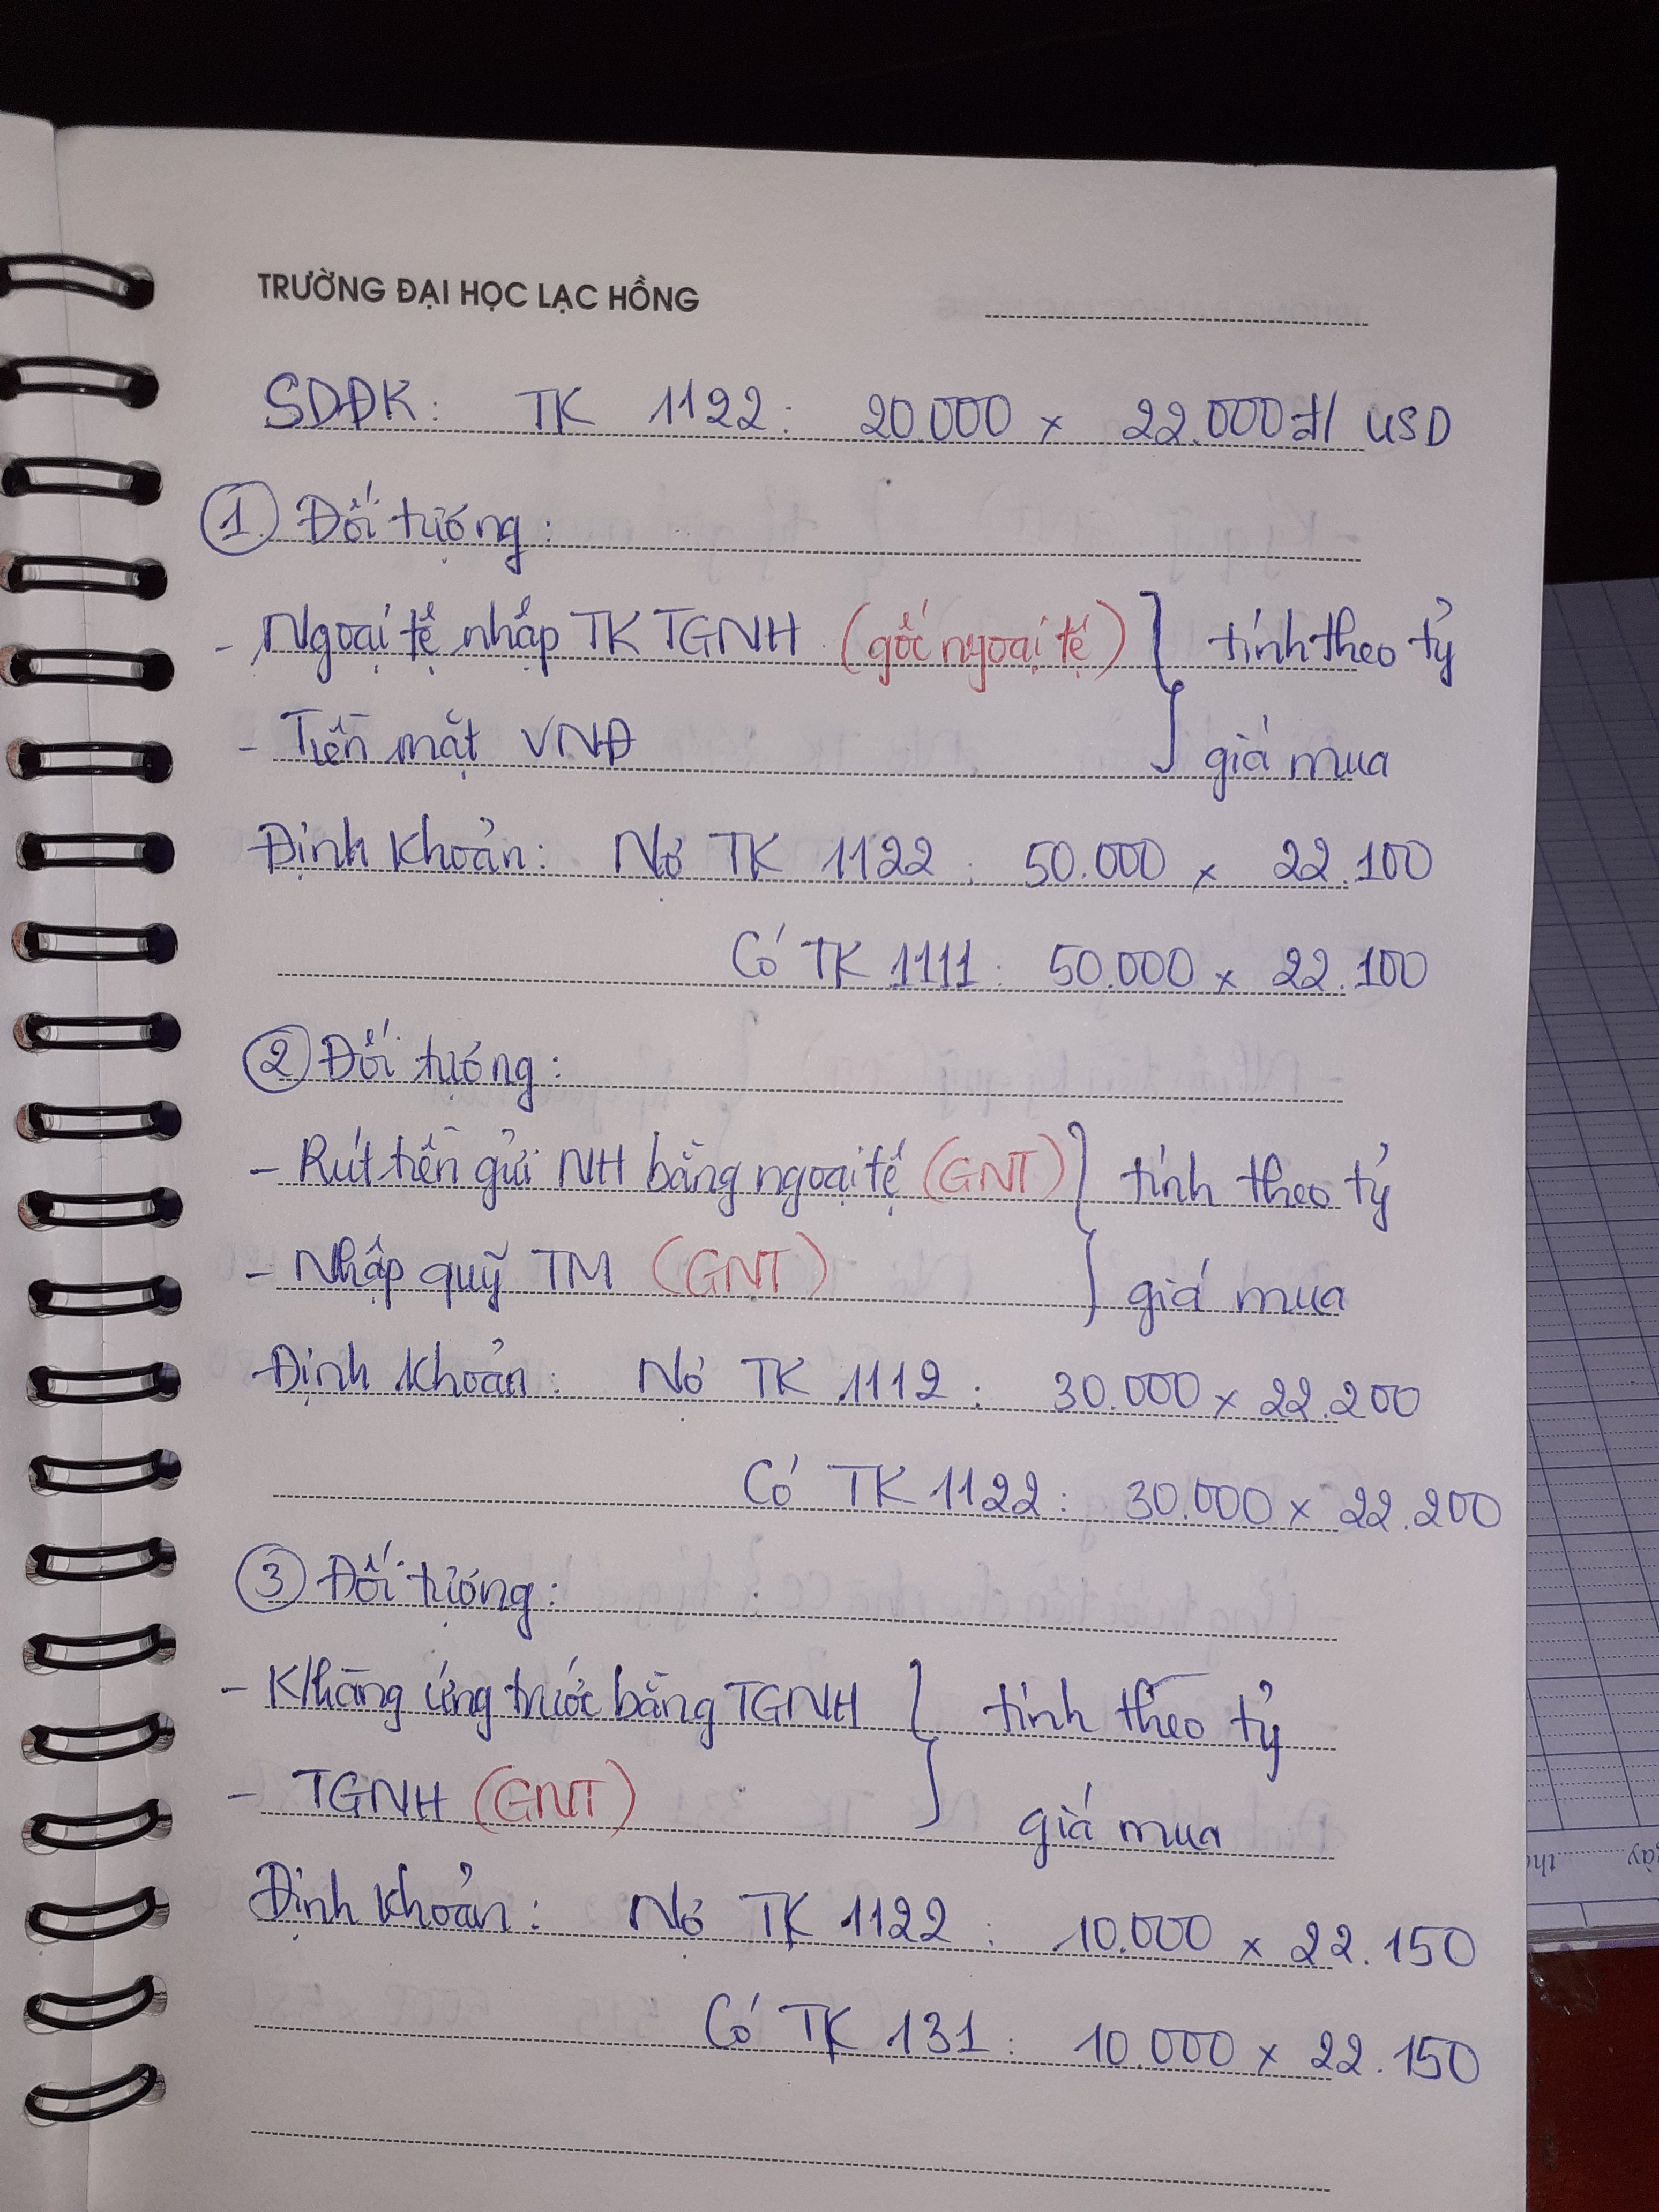 TRƯỜNG ĐẠI HỌC LẠC HỒNG
SDĐK: TK 1122: 20.000 x 22.000đ/ USD
① Đối tượng:
- Ngoại tệ nhập TK TGNH (gốc ngoại tệ) } tính theo tỷ
- Tiền mặt VNĐ } giá mua
Định khoản: Nợ TK 1122: 50.000 x 22.100
Có TK 1111: 50.000 x 22.100
② Đối tượng:
- Rút tiền gửi NH bằng ngoại tệ (GNT) } tính theo tỷ
- Nhập quỹ TM (GNT) } giá mua
Định khoản: Nợ TK 1112: 30.000 x 22.200
Có TK 1122: 30.000 x 22.200
③ Đối tượng:
- K/hàng ứng trước bằng TGNH } tính theo tỷ
- TGNH (GNT) } giá mua
Định khoản: Nợ TK 1122: 10.000 x 22.150
Có TK 131: 10.000 x 22.150